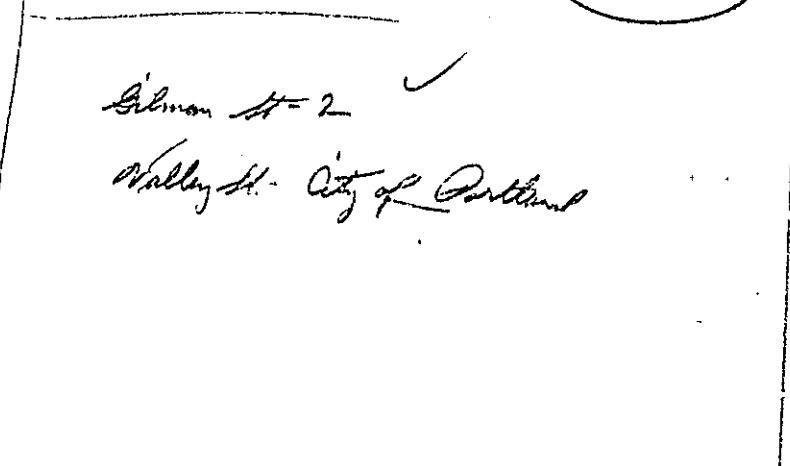 Gilman St - 2 ✓
Valley St. - City of Portland